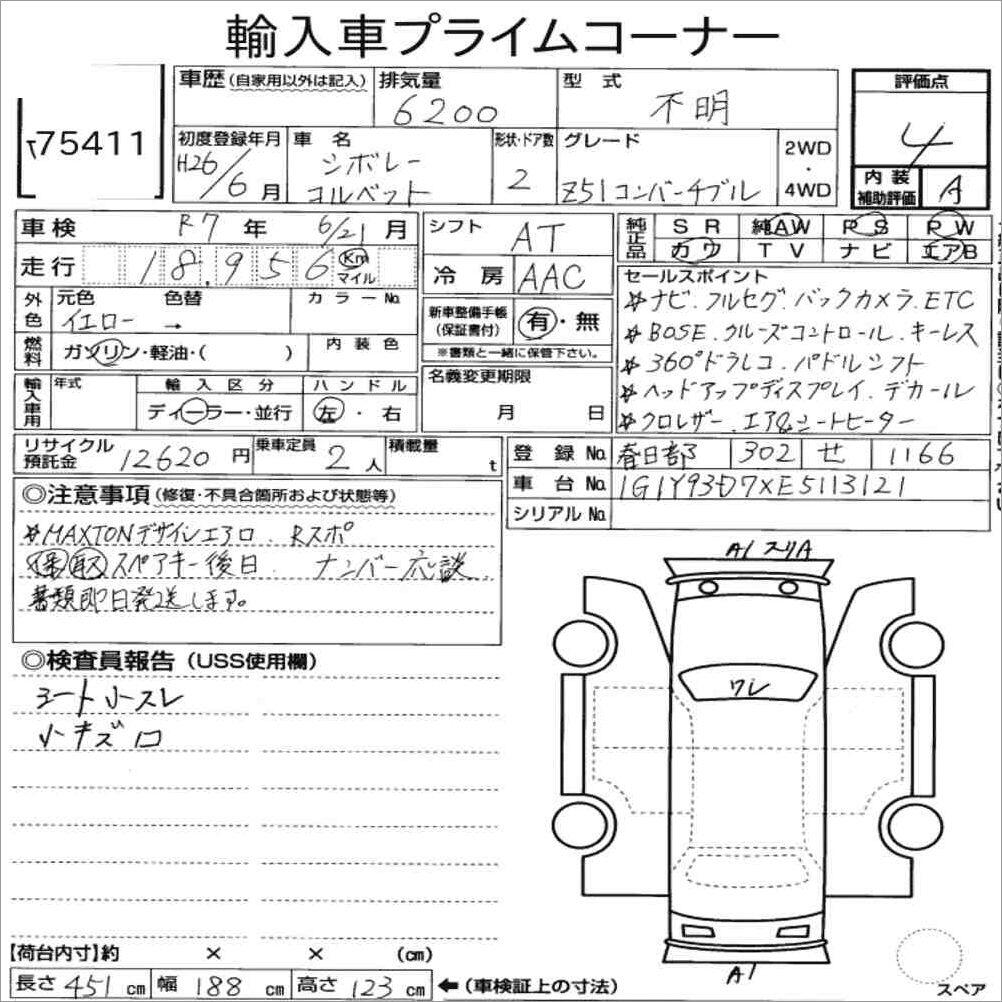 輸入車プライムコーナー
75411
車歴(自家用以外は記入)
排気量 6200
型式 不明
評価点 4
初度登録年月 H26/6月
車名 シボレー コルベット
形状・ドア数 2
グレード Z51コンバーチブル
2WD・4WD
内装補助評価 A
車検 R7年 6/21月
走行 18,956 Km マイル
シフト AT
冷房 AAC
純正品 SR 純AW PS PW
カワ TV ナビ エアB
外色 元色 イエロー → 色替 カラーNo.
燃料 ガソリン・軽油・( ) 内装色
新車整備手帳(保証書付) 有・無
※書類と一緒に保管下さい。
セールスポイント
☆ナビ.フルセグ.バックカメラ.ETC
☆BOSE.クルーズコントロール.キーレス
☆360°ドラレコ.パドルシフト
☆ヘッドアップディスプレイ.デカール
☆クロレザー.エア&シートヒーター
輸入車用 年式 輸入区分 ディーラー・並行
ハンドル 左・右
名義変更期限 月 日
リサイクル預託金 12620円
乗車定員 2人
積載量 t
登録No. 春日部 302 せ 1166
車台No. 1G1Y93D7XE5113121
シリアルNo.
◎注意事項(修復・不具合箇所および状態等)
☆MAXTONデザインエアロ. Rスポ
保 取 スペアキー後日. ナンバー応談.
書類即日発送します。
◎検査員報告(USS使用欄)
シート小スレ
小キズ
A1スリA
ワレ
A1
スペア
【荷台内寸】約 × × (cm)
長さ 451 cm 幅 188 cm 高さ 123 cm ←(車検証上の寸法)